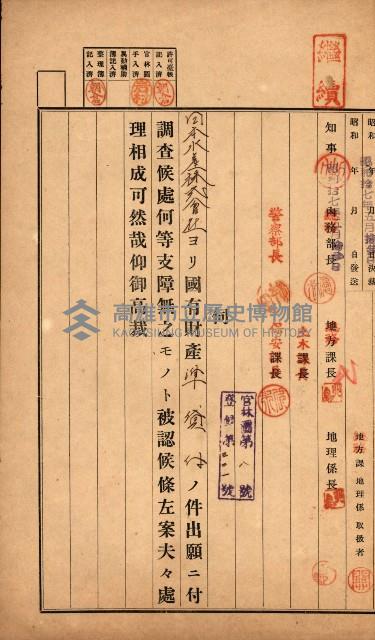 繼續
昭和 年 月 日決裁
昭和拾七年五月
昭和 年 月 日發送
地方課 地理係 取扱者
知事
內務部長
地方課長
地理係長
警察部長
土木課長
保安課長
官林圖第八號
登錄第 號
伺
日本水產株式會社ヨリ國有財產準貸付ノ件出願ニ付
調查候處何等支障無之モノト被認候條左案夫々處
理相成可然哉仰御高裁
許可臺帳記入濟
官林圖手入濟
異動補助簿記入濟
整理簿記入濟
高雄市立歷史博物館
KAOHSIUNG MUSEUM OF HISTORY